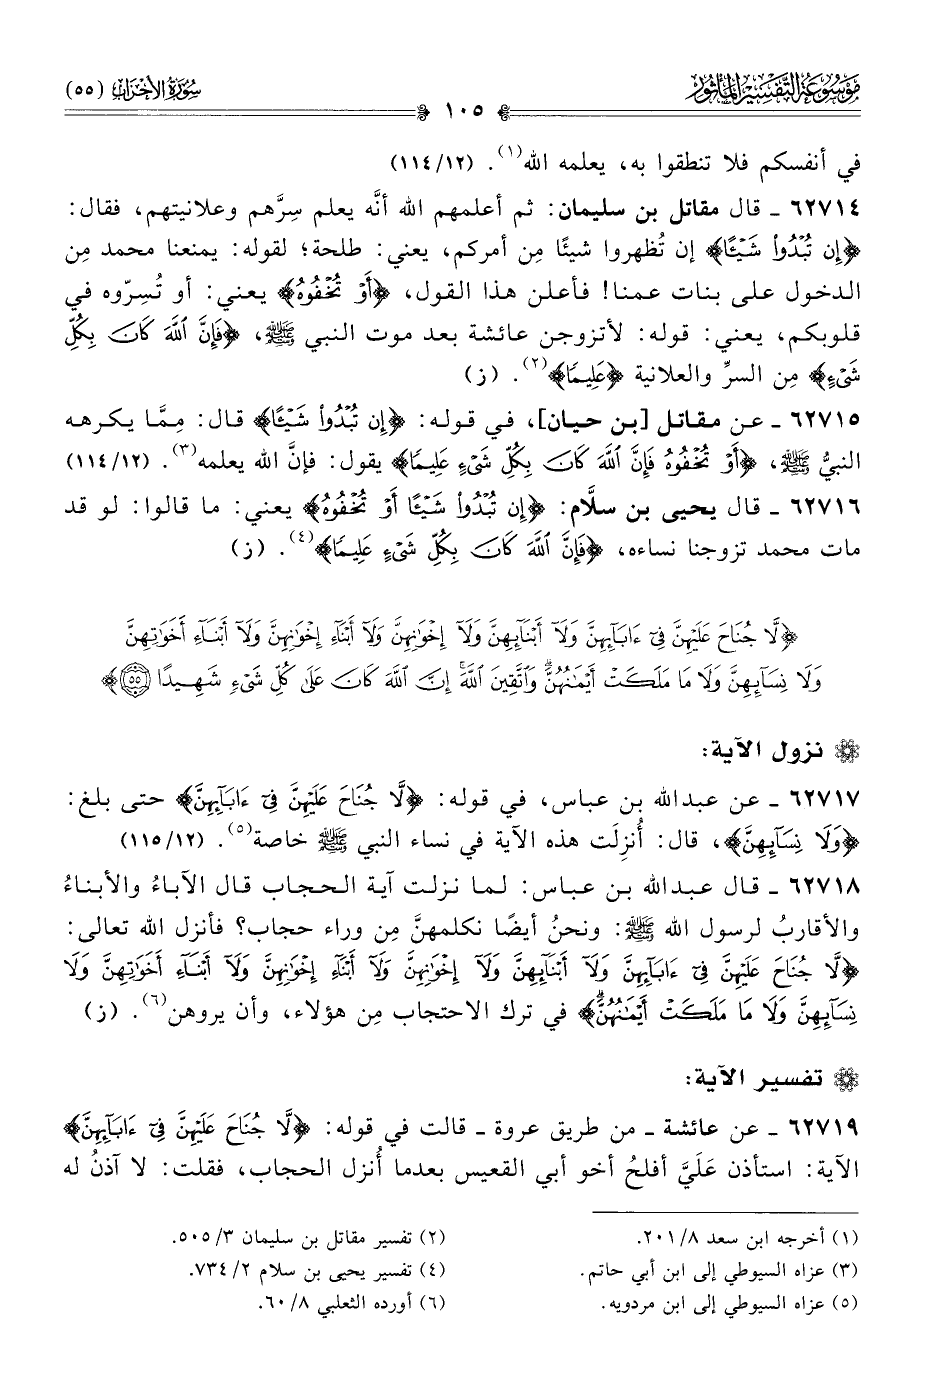 مَوْسُوعَة التَّفْسِير المَأثُور
سُورَةُ الأَحْزَاب (٥٥)
١٠٥
في أنفسكم فلا تنطقوا به، يعلمه الله(١). (١٢/ ١١٤)
٦٢٧١٤ ـ قال مقاتل بن سليمان: ثم أعلمهم الله أنَّه يعلم سِرَّهم وعلانيتهم، فقال:
﴿إِن تُبْدُوا۟ شَيْـًٔا﴾ إن تُظهروا شيئًا مِن أمركم، يعني: طلحة؛ لقوله: يمنعنا محمد مِن
الدخول على بنات عمنا! فأعلن هذا القول، ﴿أَوْ تُخْفُوهُ﴾ يعني: أو تُسِرّوه في
قلوبكم، يعني: قوله: لأتزوجن عائشة بعد موت النبي ﷺ، ﴿فَإِنَّ ٱللَّهَ كَانَ بِكُلِّ
شَىْءٍ﴾ مِن السرِّ والعلانية ﴿عَلِيمًا﴾(٢). (ز)
٦٢٧١٥ ـ عن مقاتل [بن حيان]، في قوله: ﴿إِن تُبْدُوا۟ شَيْـًٔا﴾ قال: مِمَّا يكرهه
النبيُّ ﷺ، ﴿أَوْ تُخْفُوهُ فَإِنَّ ٱللَّهَ كَانَ بِكُلِّ شَىْءٍ عَلِيمًا﴾ يقول: فإنَّ الله يعلمه(٣). (١٢/ ١١٤)
٦٢٧١٦ ـ قال يحيى بن سلَّام: ﴿إِن تُبْدُوا۟ شَيْـًٔا أَوْ تُخْفُوهُ﴾ يعني: ما قالوا: لو قد
مات محمد تزوجنا نساءه، ﴿فَإِنَّ ٱللَّهَ كَانَ بِكُلِّ شَىْءٍ عَلِيمًا﴾(٤). (ز)
﴿لَّا جُنَاحَ عَلَيْهِنَّ فِىٓ ءَابَآئِهِنَّ وَلَآ أَبْنَآئِهِنَّ وَلَآ إِخْوَٰنِهِنَّ وَلَآ أَبْنَآءِ إِخْوَٰنِهِنَّ وَلَآ أَبْنَآءِ أَخَوَٰتِهِنَّ
وَلَا نِسَآئِهِنَّ وَلَا مَا مَلَكَتْ أَيْمَٰنُهُنَّ ۗ وَٱتَّقِينَ ٱللَّهَ ۚ إِنَّ ٱللَّهَ كَانَ عَلَىٰ كُلِّ شَىْءٍ شَهِيدًا ٥٥﴾
نزول الآية:
٦٢٧١٧ ـ عن عبدالله بن عباس، في قوله: ﴿لَّا جُنَاحَ عَلَيْهِنَّ فِىٓ ءَابَآئِهِنَّ﴾ حتى بلغ:
﴿وَلَا نِسَآئِهِنَّ﴾، قال: أُنزِلَت هذه الآية في نساء النبي ﷺ خاصة(٥). (١٢/ ١١٥)
٦٢٧١٨ ـ قال عبدالله بن عباس: لما نزلت آية الحجاب قال الآباءُ والأبناءُ
والأقاربُ لرسول الله ﷺ: ونحنُ أيضًا نكلمهنَّ مِن وراء حجاب؟ فأنزل الله تعالى:
﴿لَّا جُنَاحَ عَلَيْهِنَّ فِىٓ ءَابَآئِهِنَّ وَلَآ أَبْنَآئِهِنَّ وَلَآ إِخْوَٰنِهِنَّ وَلَآ أَبْنَآءِ إِخْوَٰنِهِنَّ وَلَآ أَبْنَآءِ أَخَوَٰتِهِنَّ وَلَا
نِسَآئِهِنَّ وَلَا مَا مَلَكَتْ أَيْمَٰنُهُنَّ ۗ﴾ في ترك الاحتجاب مِن هؤلاء، وأن يروهن(٦). (ز)
تفسير الآية:
٦٢٧١٩ ـ عن عائشة ـ من طريق عروة ـ قالت في قوله: ﴿لَّا جُنَاحَ عَلَيْهِنَّ فِىٓ ءَابَآئِهِنَّ﴾
الآية: استأذن عَلَيَّ أفلحُ أخو أبي القعيس بعدما أُنزل الحجاب، فقلت: لا آذنُ له
(١) أخرجه ابن سعد ٨/ ٢٠١.
(٢) تفسير مقاتل بن سليمان ٣/ ٥٠٥.
(٣) عزاه السيوطي إلى ابن أبي حاتم.
(٤) تفسير يحيى بن سلام ٢/ ٧٣٤.
(٥) عزاه السيوطي إلى ابن مردويه.
(٦) أورده الثعلبي ٨/ ٦٠.